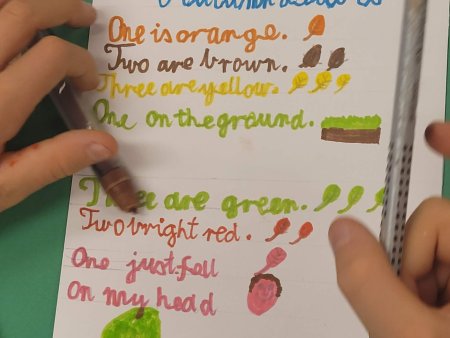 One is orange.
Two are brown.
Three are yellow.
One on the ground.
Three are green.
Two bright red.
One just fell
On my head